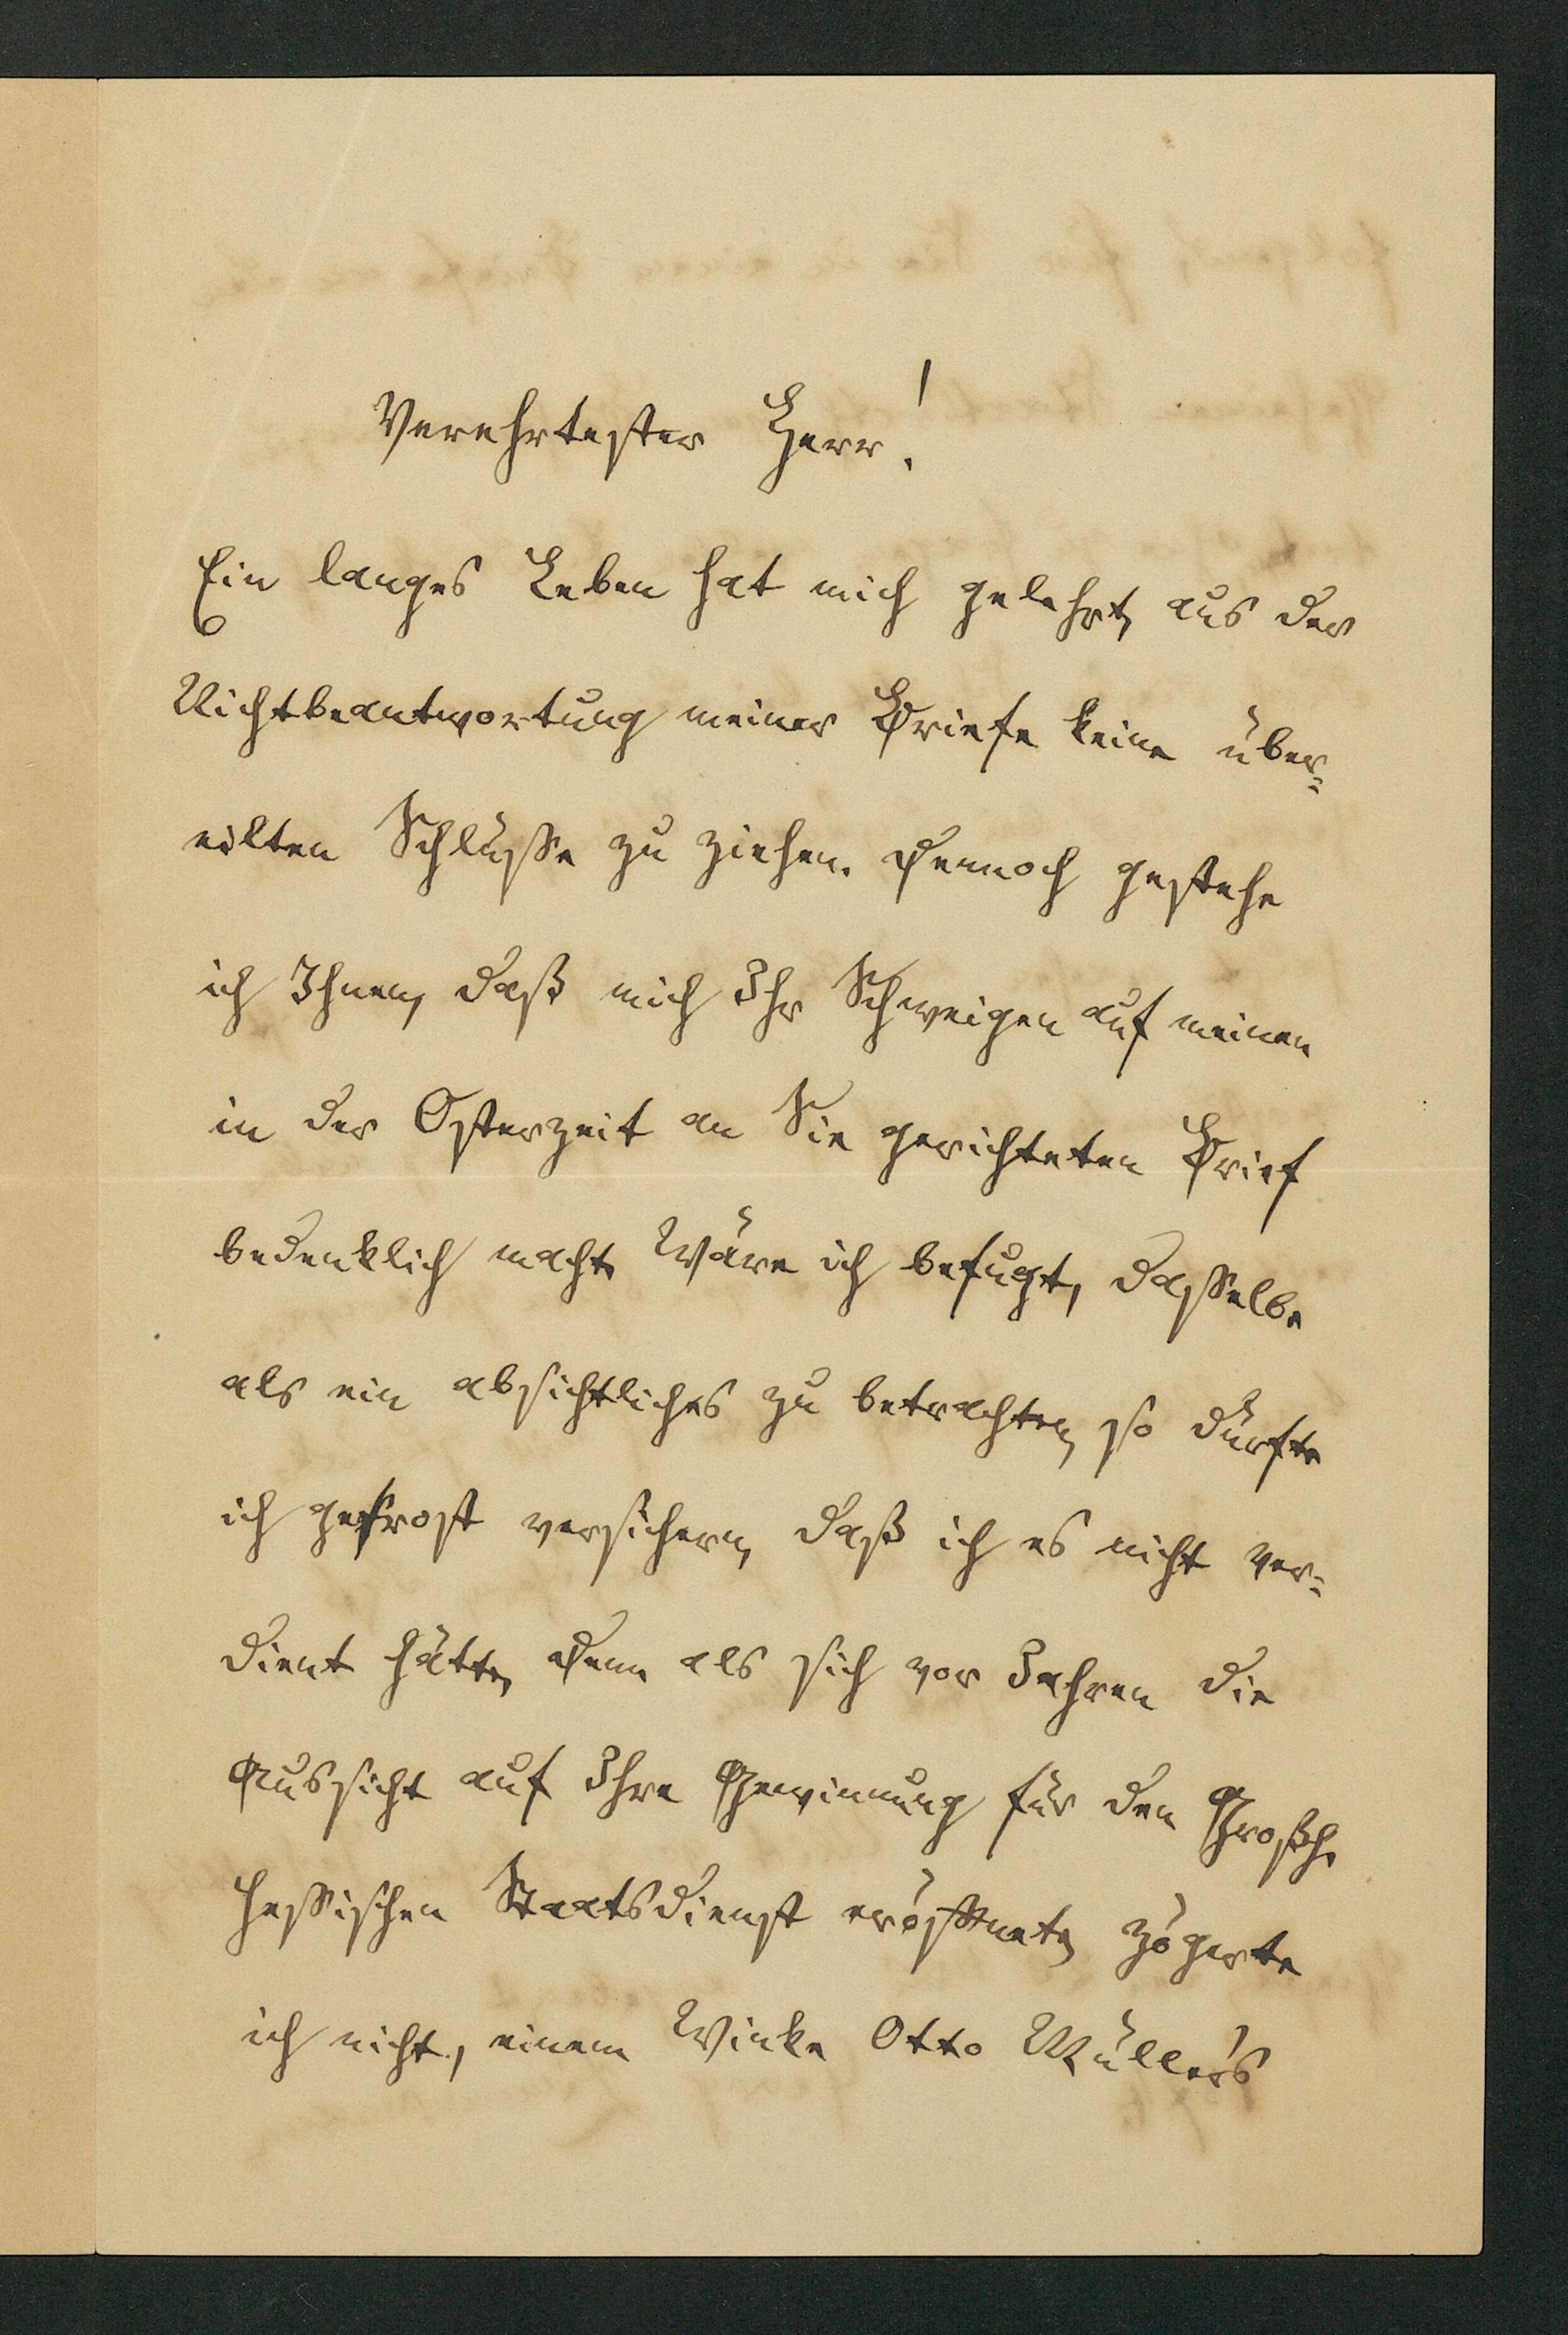 Verehrtester Herr!
Ein langes Leben hat mich gelehrt, aus der
Nichtbeantwortung meiner Briefe keine über-
eilten Schlüsse zu ziehen. Dennoch gestehe
ich Ihnen, daß mich Ihr Schweigen auf meinen
in der Osterzeit an Sie gerichteten Brief
bedenklich macht. Wäre ich befugt, dasselbe
als ein absichtliches zu betrachten, so dürfte
ich getrost versichern, daß ich es nicht ver-
dient hätte, denn als sich vor Jahren die
Aussicht auf Ihre Gewinnung für den Großh.
hessischen Staatsdienst eröffnete, zögerte
ich nicht, einem Winke Otto Müller's